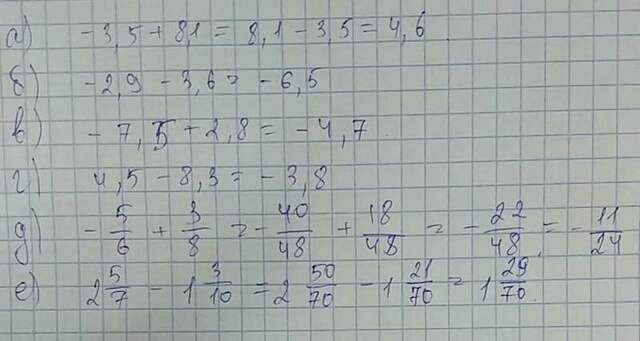 а) -3,5 + 8,1 = 8,1 - 3,5 = 4,6
б) -2,9 - 3,6 = -6,5
в) -7,5 + 2,8 = -4,7
г) 4,5 - 8,3 = -3,8
д) -5/6 + 3/8 = -40/48 + 18/48 = -22/48 = -11/24
е) 2 5/7 - 1 3/10 = 2 50/70 - 1 21/70 = 1 29/70.